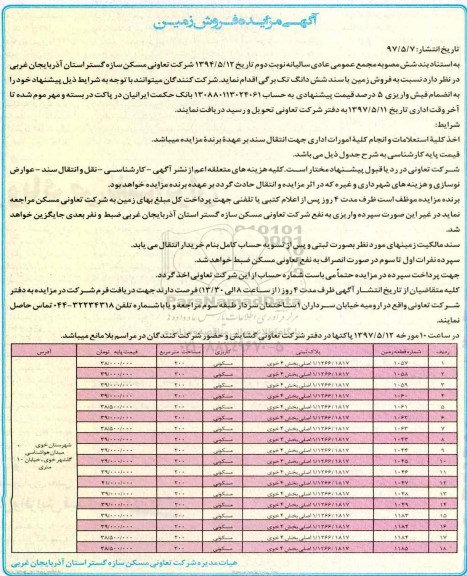 آگهی مزایده فروش زمین
تاریخ انتشار: ۹۷/۵/۷
به استناد بند شش مصوبه مجمع عمومی عادی سالیانه نوبت دوم تاریخ ۱۳۹۴/۵/۱۲ شرکت تعاونی مسکن سازه گستر استان آذربایجان غربی
در نظر دارد نسبت به فروش زمین با سند شش دانگ تک برگی اقدام نماید. شرکت کنندگان میتوانند با توجه به شرایط ذیل پیشنهاد خود را
به انضمام فیش واریزی ۵ درصد قیمت پیشنهادی به حساب ۱۳۰۸۸۰۱۱۳۰۲۴۰۶۱ بانک حکمت ایرانیان در پاکت در بسته و مهر موم شده تا
آخر وقت اداری تاریخ ۱۳۹۷/۵/۱۱ به دفتر شرکت تعاونی تحویل و رسید دریافت نمایند.
شرایط:
اخذ کلیهٔ استعلامات و انجام کلیهٔ امورات اداری جهت انتقال سند بر عهدهٔ برندهٔ مزایده میباشد.
قیمت پایه کارشناسی به شرح جدول ذیل می باشد.
شرکت تعاونی در رد یا قبول پیشنهاد مختار است. کلیه هزینه های متعلقه اعم از نشر آگهی - کارشناسی - نقل و انتقال سند - عوارض
نوسازی و هزینه های شهرداری و غیره که در اثر مزایده و انتقال حادث گردد بر عهده برنده مزایده خواهد بود.
برنده مزایده موظف است ظرف مدت ۴ روز پس از اعلام کتبی یا تلفنی جهت پرداخت کل مبلغ بهای زمین به شرکت تعاونی مسکن مراجعه
نماید در غیر این صورت سپرده واریزی به نفع شرکت تعاونی مسکن سازه گستر استان آذربایجان غربی ضبط و نفر بعدی جایگزین خواهد
شد.
سند مالکیت زمینهای مورد نظر بصورت ثبتی و پس از تسویه حساب کامل بنام خریدار انتقال می یابد.
سپرده نفرات اول تا سوم در صورت انصراف به نفع تعاونی مسکن ضبط خواهد شد.
جهت پرداخت سپرده در مزایده حتماً می بایست شماره حساب از این شرکت تعاونی اخذ گردد.
کلیه متقاضیان از تاریخ انتشار آگهی ظرف مدت ۴ روز (از ساعت ۸ الی ۱۳/۳۰) فرصت دارند جهت دریافت فرم شرکت در مزایده به دفتر
شرکت تعاونی واقع در ارومیه خیابان سرداران ۱ ساختمان سردار طبقه سوم مراجعه و یا با شماره تلفن ۳۲۲۳۴۳۱۸-۰۴۴ تماس حاصل
نمایند.
در ساعت ۱۰ مورخه ۱۳۹۷/۵/۱۲ پاکتها در دفتر شرکت تعاونی گشایش و حضور شرکت کنندگان در مراسم بلامانع میباشد.
ردیف شماره قطعه زمین پلاک ثبتی کاربری مساحت متر مربع قیمت پایه تومان آدرس
۱ ۱۰۵۷ ۱/۱۲۶۶/۱۸۱۷ اصلی بخش ۴ خوی مسکونی ۲۰۰ ۳۸/۰۰۰/۰۰۰
۲ ۱۰۵۸ ۱/۱۲۶۶/۱۸۱۷ اصلی بخش ۴ خوی مسکونی ۲۰۰ ۳۹/۰۰۰/۰۰۰
۳ ۱۰۵۹ ۱/۱۲۶۶/۱۸۱۷ اصلی بخش ۴ خوی مسکونی ۲۰۰ ۳۹/۰۰۰/۰۰۰
۴ ۱۰۶۰ ۱/۱۲۶۶/۱۸۱۷ اصلی بخش ۴ خوی مسکونی ۲۰۰ ۳۹/۰۰۰/۰۰۰
۵ ۱۰۶۱ ۱/۱۲۶۶/۱۸۱۷ اصلی بخش ۴ خوی مسکونی ۲۰۰ ۳۸/۵۰۰/۰۰۰
۶ ۱۰۶۲ ۱/۱۲۶۶/۱۸۱۷ اصلی بخش ۴ خوی مسکونی ۲۰۰ ۳۹/۰۰۰/۰۰۰
۷ ۱۰۶۳ ۱/۱۲۶۶/۱۸۱۷ اصلی بخش ۴ خوی مسکونی ۲۰۰ ۳۸/۵۰۰/۰۰۰
۸ ۱/۱۲۶۶/۱۸۱۷ اصلی بخش ۴ خوی مسکونی ۲۰۰ ۳۹/۰۰۰/۰۰۰
۹ ۱/۱۲۶۶/۱۸۱۷ اصلی بخش ۴ خوی مسکونی ۲۰۰ ۳۹/۰۰۰/۰۰۰
۱۰ ۱/۱۲۶۶/۱۸۱۷ اصلی بخش ۴ خوی مسکونی ۲۰۰ ۳۹/۰۰۰/۰۰۰
۱۱ ۱/۱۲۶۶/۱۸۱۷ اصلی بخش ۴ خوی مسکونی ۲۰۰
۱۲ ۱/۱۲۶۶/۱۸۱۷ اصلی بخش ۴ خوی مسکونی ۲۰۰
۱۳ ۱/۱۲۶۶/۱۸۱۷ اصلی بخش ۴ خوی مسکونی ۲۰۰ ۳۹/۰۰۰/۰۰۰
۱۴ ۱/۱۲۶۶/۱۸۱۷ اصلی بخش ۴ خوی مسکونی ۲۰۰ ۳۹/۰۰۰/۰۰۰
۱۵ ۱۱۸۳ ۱/۱۲۶۶/۱۸۱۷ اصلی بخش ۴ خوی مسکونی ۲۰۰ ۳۹/۰۰۰/۰۰۰
۱۶ ۱۱۸۴ ۱/۱۲۶۶/۱۸۱۷ اصلی بخش ۴ خوی مسکونی ۲۰۰ ۳۹/۰۰۰/۰۰۰
۱۷ ۱۱۸۴ ۱/۱۲۶۶/۱۸۱۷ اصلی بخش ۴ خوی مسکونی ۲۰۰ ۳۸/۵۰۰/۰۰۰
۱۸ ۱۱۸۵ ۱/۱۲۶۶/۱۸۱۷ اصلی بخش ۴ خوی مسکونی ۲۰۰ ۳۸/۵۰۰/۰۰۰
شهرستان خوی -
میدان هواشناسی
گلشهر خوی، خیابان ۱۰
متری
هیات مدیره شرکت تعاونی مسکن سازه گستر استان آذربایجان غربی